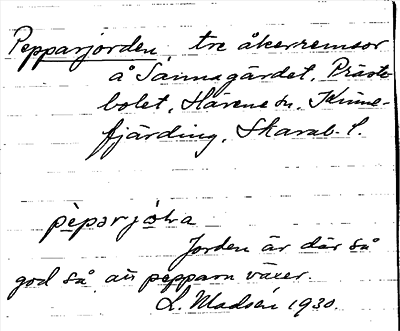 Pepparjorden, tre åkerremsor
å Sannagärdet, Präste-
bolet, Härene sn, Kinne-
fjärding, Skarab. l.
Jorden är där så
god så att pepparn växer.
L. Madsén 1930.